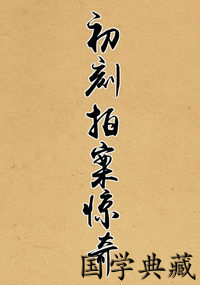 初刻拍案惊奇
国学典藏